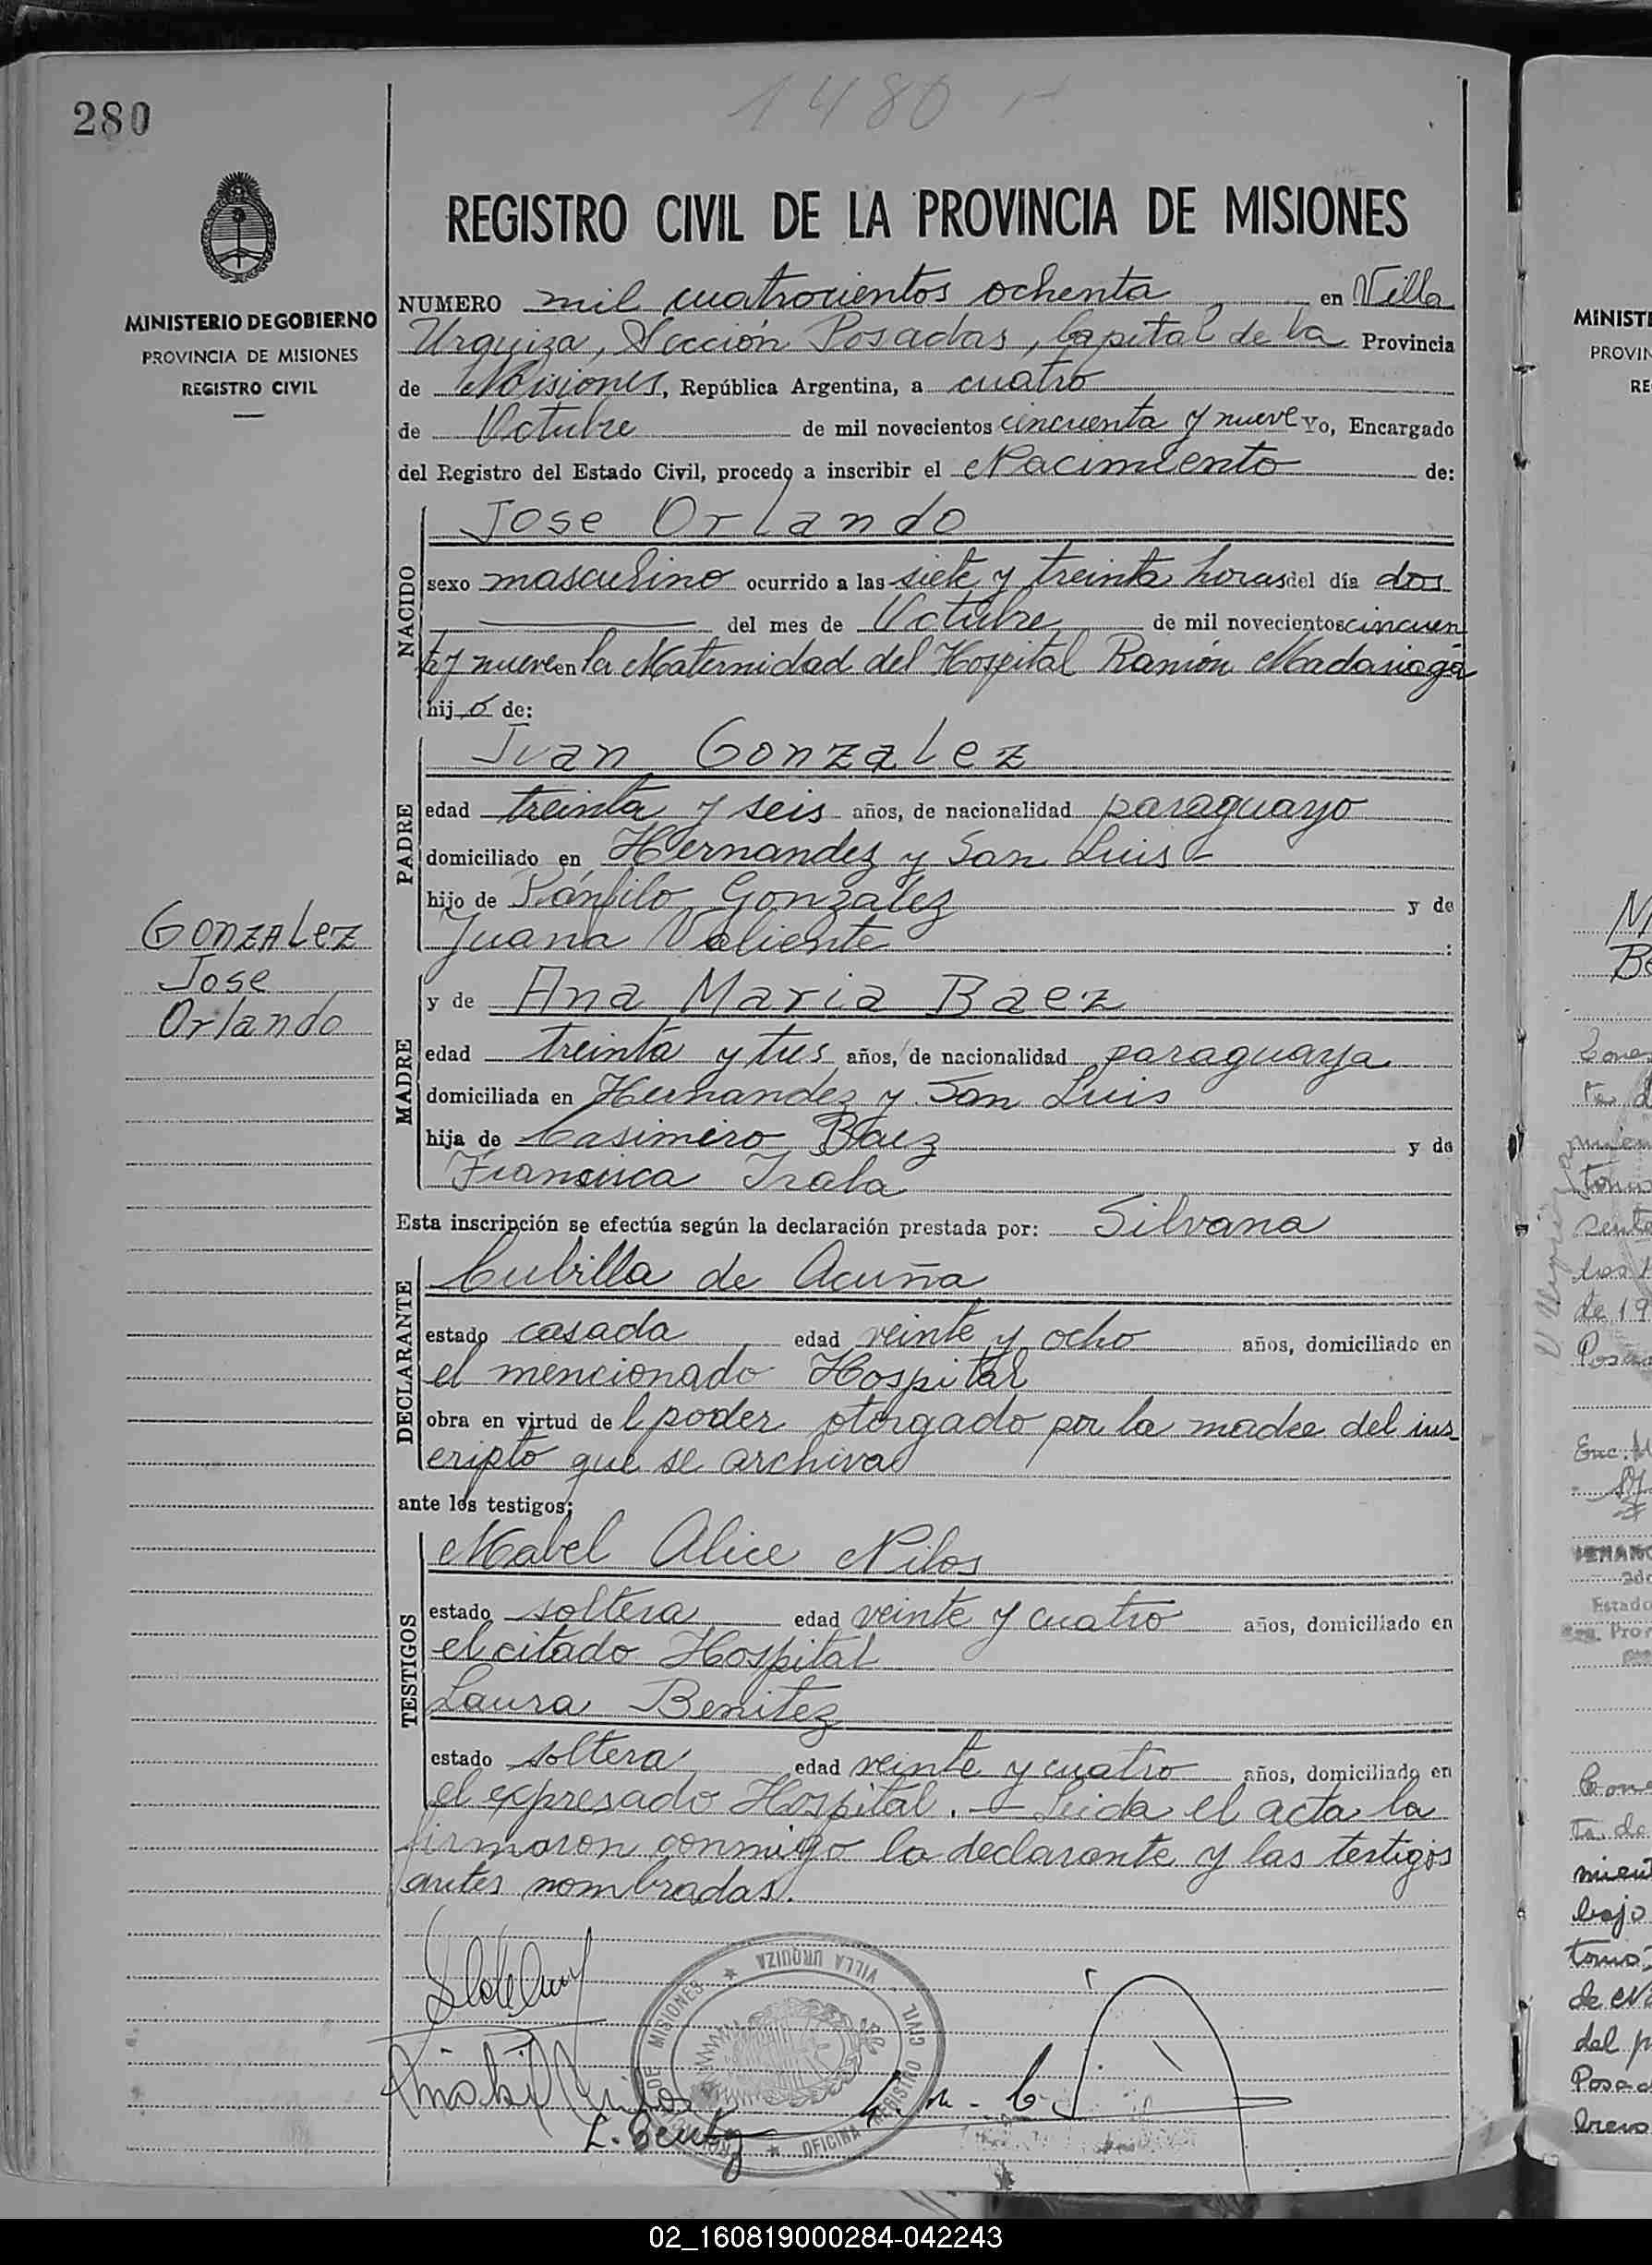 280
1480
REGISTRO CIVIL DE LA PROVINCIA DE MISIONES
MINISTERIO DE GOBIERNO
PROVINCIA DE MISIONES
REGISTRO CIVIL
NUMERO mil cuatrocientos ochenta en Villa
Urquiza, Sección Posadas, Capital de la Provincia
de Misiones, República Argentina, a cuatro
de Octubre de mil novecientos cincuenta y nueve Yo, Encargado
del Registro del Estado Civil, procedo a inscribir el Nacimiento de:
NACIDO
Jose Orlando
sexo masculino ocurrido a las siete y treinta horas del día dos
del mes de Octubre de mil novecientos cincuen
ta y nueve en la Maternidad del Hospital Ramón Madariaga
hijo de:
PADRE
Juan Gonzalez
edad treinta y seis años, de nacionalidad paraguayo
domiciliado en Hernandez y San Luis
hijo de Pánfilo Gonzalez y de
Juana Valiente :
Gonzalez
Jose
Orlando
MADRE
y de Ana Maria Baez
edad treinta y tres años, de nacionalidad paraguaya
domiciliada en Hernandez y San Luis
hija de Casimiro Baez y de
Francisca Irala
Esta inscripción se efectúa según la declaración prestada por: Silvana
DECLARANTE
Cubilla de Acuña
estado casada edad veinte y ocho años, domiciliado en
el mencionado Hospital
obra en virtud de l poder otorgado por la madre del ins
cripto que se archiva
ante los testigos;
TESTIGOS
Mabel Alice Nilos
estado soltera edad veinte y cuatro años, domiciliado en
el citado Hospital
Laura Benitez
estado soltera edad veinte y cuatro años, domiciliado en
el expresado Hospital. — Leida el acta la
firmaron conmigo la declarante y las testigos
antes nombradas.
VILLA URQUIZA
DE MISIONES
OFICINA REGISTRO CIVIL
L. Benitez
MINISTE
PROVIN
RE
02_160819000284-042243